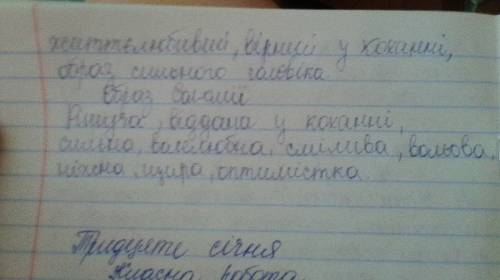 життєлюбивий, вірний у коханні,
образ сильного чоловіка
Образ Соломії
Рішуча, віддана у коханні,
сильна, волелюбна, смілива, вольова,
ніжна, щира, оптимістка.
Тридцяте січня
Класна робота